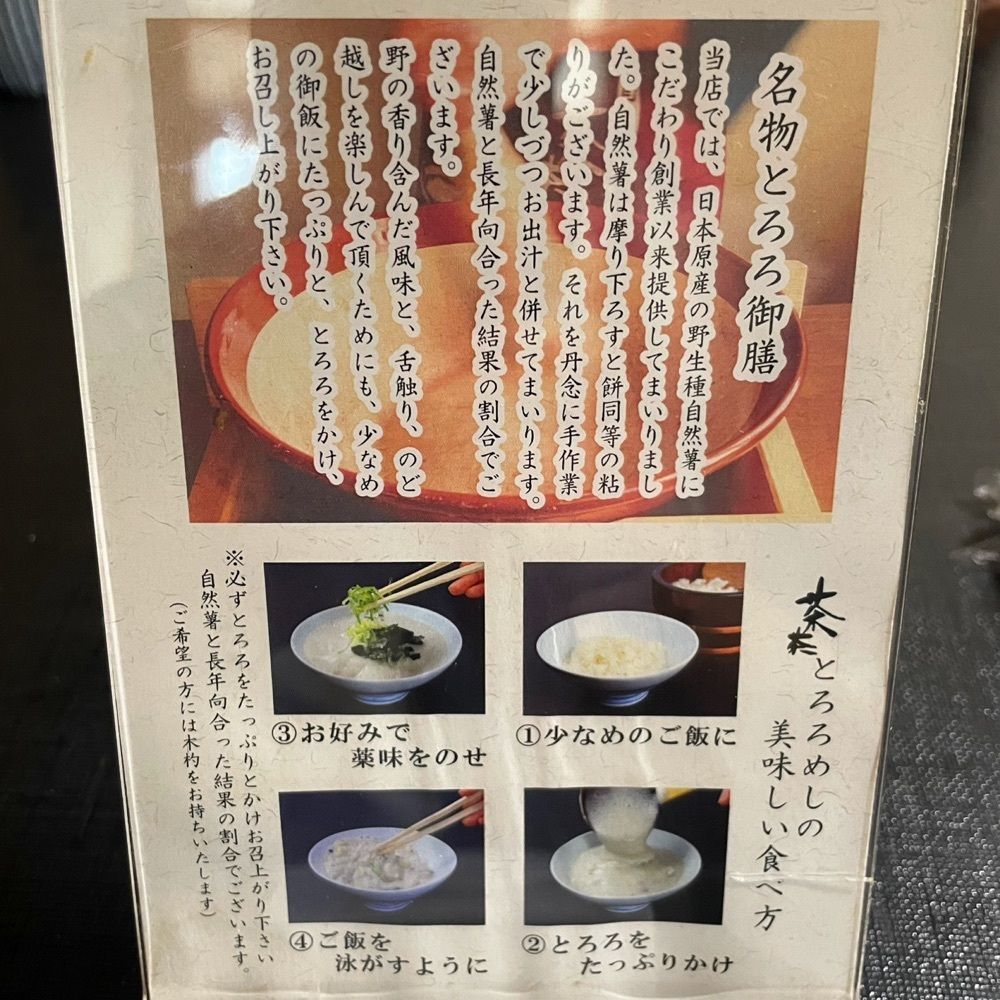 名物とろろ御膳
当店では、日本原産の野生種自然薯に
こだわり創業以来提供してまいりまし
た。自然薯は摩り下ろすと餅同等の粘
りがございます。それを丹念に手作業
で少しづつお出汁と併せてまいります。
自然薯と長年向合った結果の割合でご
ざいます。
野の香り含んだ風味と、舌触り、のど
越しを楽しんで頂くためにも、少なめ
の御飯にたっぷりと、とろろをかけ、
お召し上がり下さい。
とろろめしの
美味しい食べ方
①少なめのご飯に
②とろろを
たっぷりかけ
③お好みで
薬味をのせ
④ご飯を
泳がすように
※必ずとろろをたっぷりとかけお召上がり下さい
自然薯と長年向合った結果の割合でございます。
(ご希望の方には木杓をお持ちいたします)